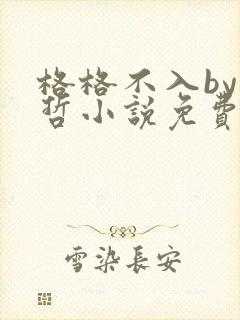 格格不入by
哲小說免費
雪染長安